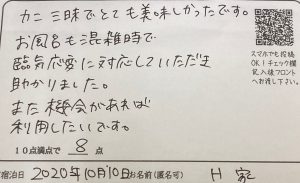 カニ三昧でとても美味しかったです。
お風呂も混雑時で
臨気応変に対応していただき
助かりました。
また機会があれば
利用したいです。
スマホでも投稿
OK!チェック欄
記入後フロント
へお渡し下さい。
10点満点で 8 点
宿泊日 2020年10月10日 お名前(匿名可) H 家